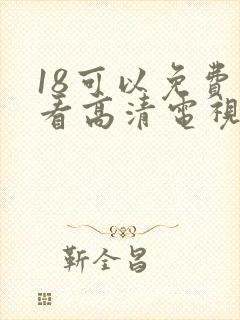 18可以免費
看高清電視
靳全昌